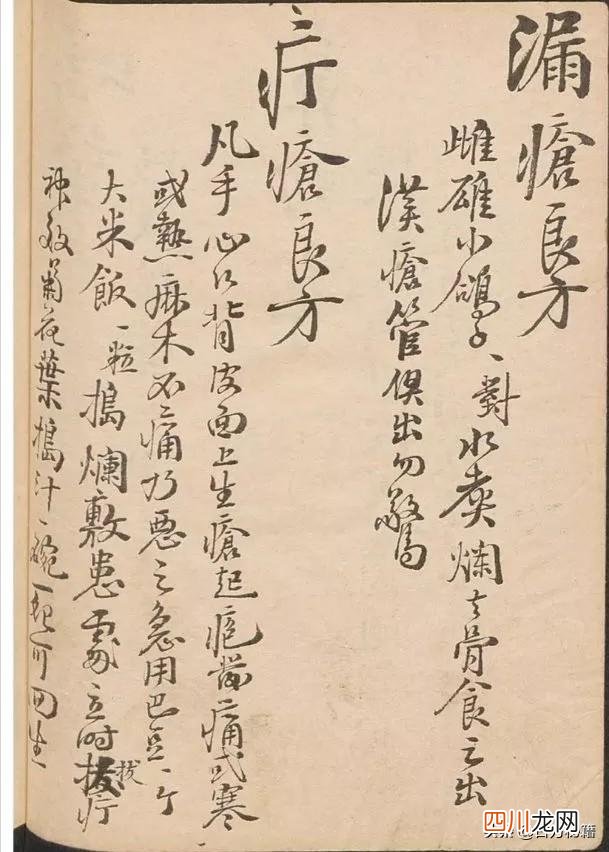 漏瘡良方
雌雄小鴿子、一對水煮爛去骨食之出
漢瘡管俱出勿驚
疔瘡良方
凡手心江背皮面上生瘡起疱
痛或寒
或熱麻木不痛乃惡之急用巴豆一个
大米飯一粒搗爛敷患處立時拔疔
神效菊花葉搗汁一碗
可回生
四川龙网